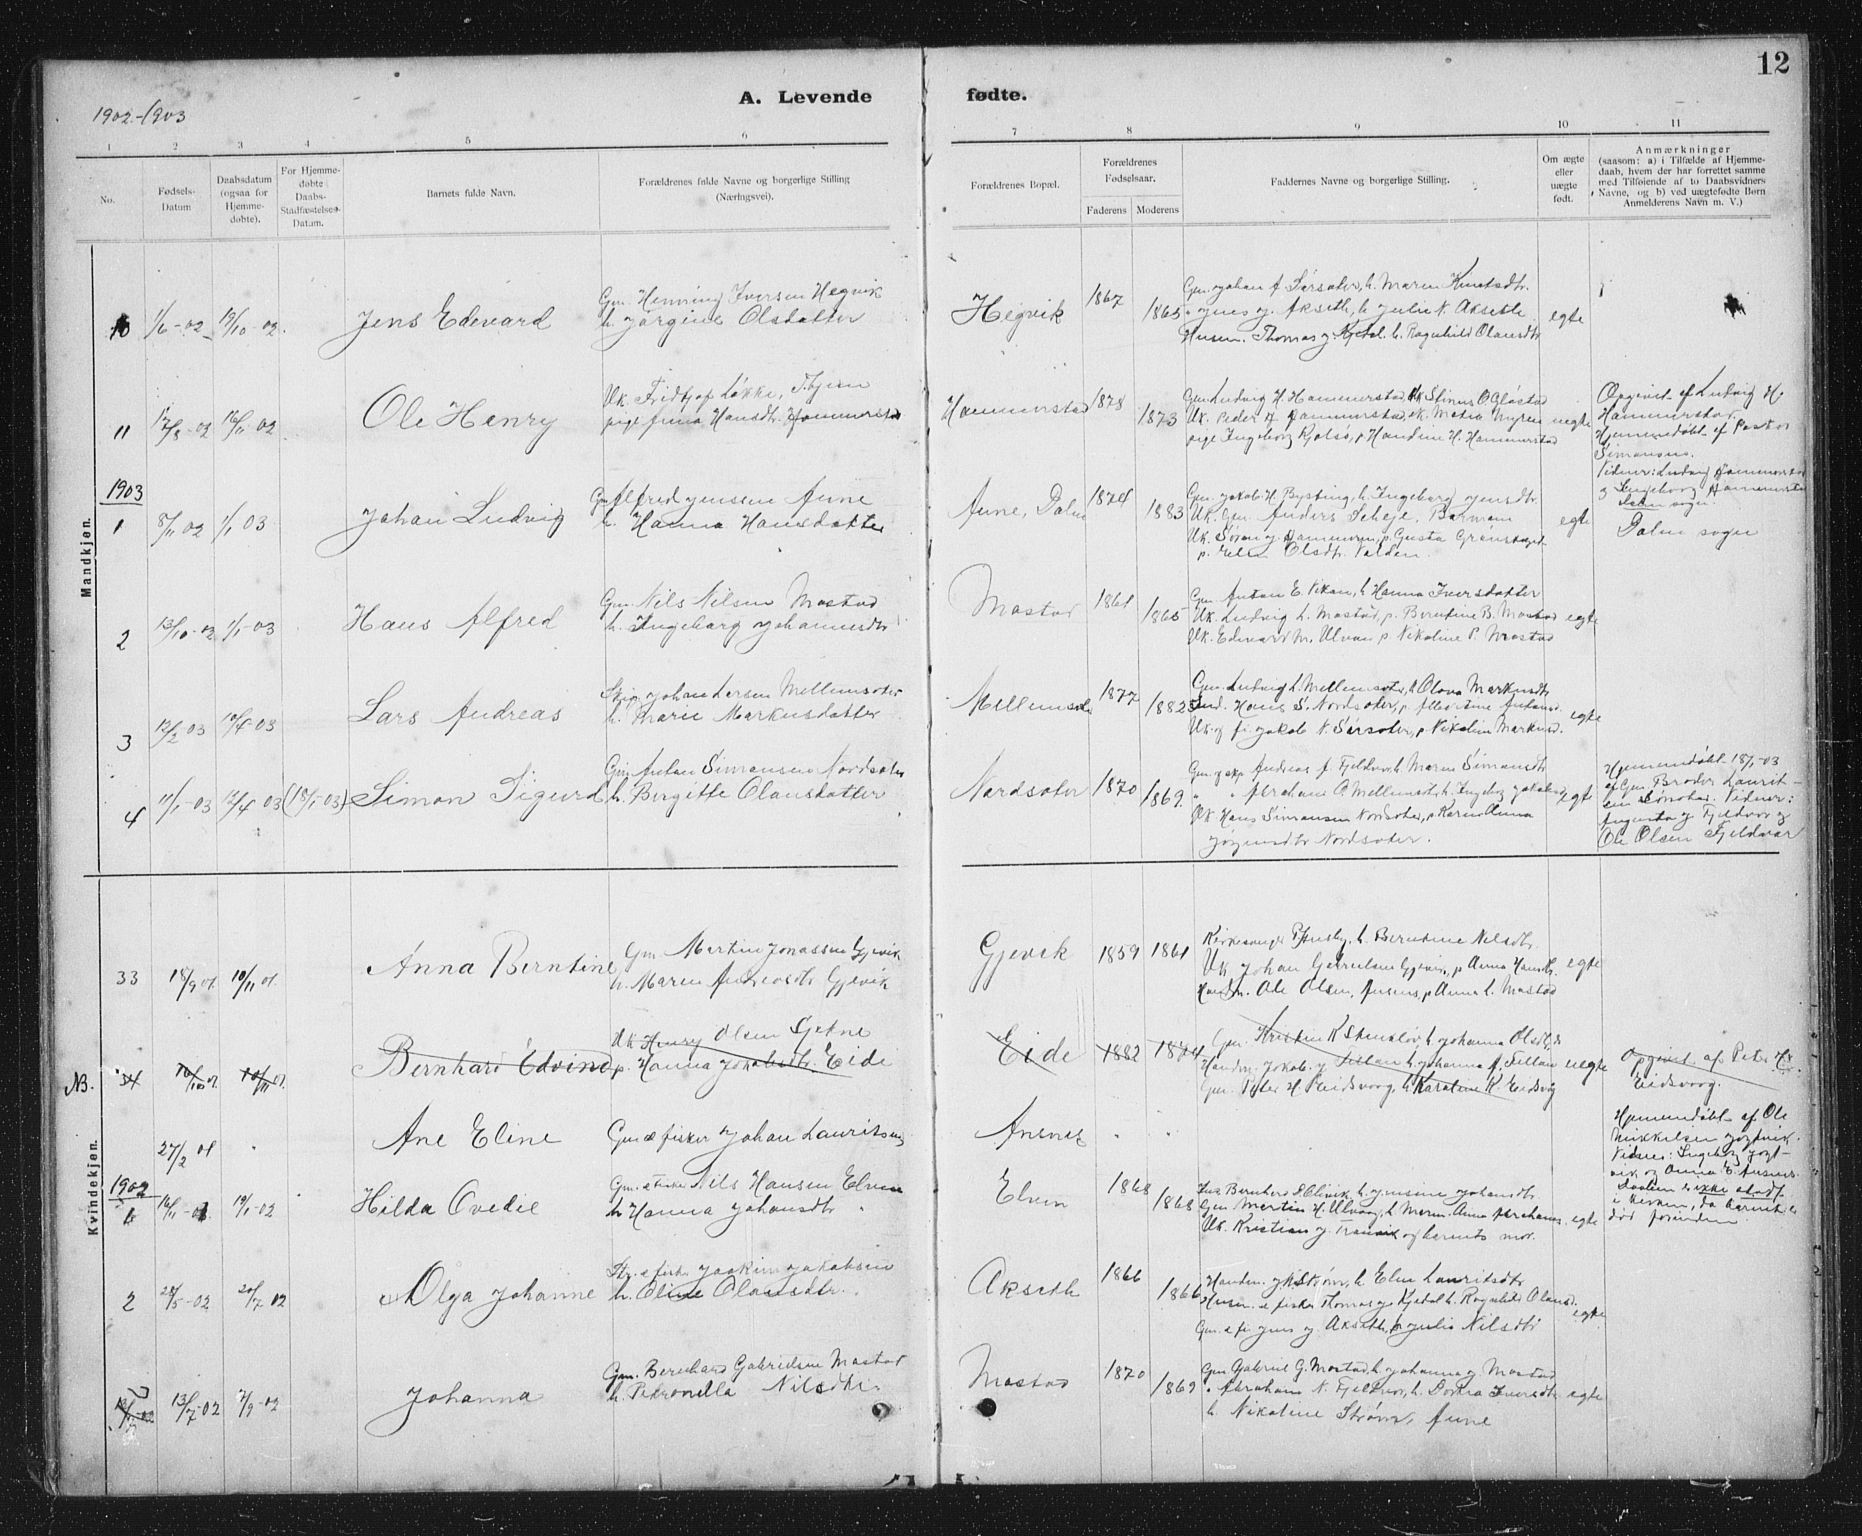 12
1902-1903
A. Levende fødte.
1 2 3 4 5 6 7 8 9 10 11
No.
Fødsels-Datum
Daabsdatum (ogsaa for Hjemme-døbte).
For Hjemme-døbte Daabs-Stadfæstelses-Datum.
Barnets fulde Navn.
Forældrenes fulde Navne og borgerlige Stilling (Næringsvei).
Forældrenes Bopæl.
Forældrenes Fødselsaar.
Faderens
Moderens
Faddernes Navne og borgerlige Stilling.
Om ægte eller uægte født.
Anmærkninger
(saasom: a) i Tilfælde af Hjemme-
daab, hvem der har forrettet samme
med Tilføiende af to Daabsvidners
Navne, og b) ved uægtefødte Børn
Anmelderens Navn m. V.)
Mandkjøn.
10 1/6-02 19/10-02 Jens Edevard
Gm. Henning Iversen Hegvik
h. Jørgine Olsdatter
Hegvik 1867 1865
Gm. Johan A Sørsæter, h. Maren Knutsdtr.
" Jens J. Akseth, h Julie N. Akseth
Husm. Thomas J. h. Ragnhild Olausdtr
egte
11 17/8-02 16/11-02 Ole Henry
Uk. Fridtjof Løkke,
pige Anna Hansdtr. Hammerstad
Hammerstad 1878 1873
Gm. Ludvig H. Hammerstad, Uk Stinus O
Uk. Peder H Hammerstad,
pige Ingeborg p Handine H. Hammerstad
uegte
Opgivet af Ludvig H.
Hammerstad.
Hjemmedøbt af Pastor
Simonsen.
Vidner: Ludvig Hammerstad
og Ingeborg Hammerstad
1903
1 8/11 02 1/1 03 Johan Ludvig
Gm Alfred Jensen Aune
h. Hanna Hansdatter
Aune, Dolm 1874 1883
Gm. Jakob H. Bysting, h. Ingeborg Jensdtr
Uk. Gm. Anders Barman
Uk. Søren J. Hammeren, p. Gusta
p. Elen Olsdtr. Valden.
egte
Dolm sogn
2 13/10-02 1/1-03 Hans Alfred
Gm. Nils Nilsen Mastad
h. Ingeborg Johannesdtr
Mastad 1861 1865
Gm. Anton E. Vikan, h Hanna Iversdatter
Uk. Ludvig L. Mastad, p. Berntine B. Mastad
Uk. Edevard M. Ulvan p Nikoline P. Mastad
egte
3 12/2 03 Lars Andreas
Johan Larsen Mellemsæter
h. Marie Markusdatter
Mellemsæter 1877 1882
Gm. Ludvig L. Mellemsæter, h Olava Markusdtr
Hans S. Nordsæter, p Albertine
Uk. og fi Jakob N. Sørsæter, p Nikoline Markusd.
egte
4 11/1-03 12/4 03 (18/1-03) Simon Sigurd
Gm Anton Simonsen Nordsæter
h. Bergitte Olausdatter
Nordsæter 1870 1869.
Gm. Andreas A Fjeldvær, h. Maren Simonsdtr
" " Abraham O. Mellemsæter, h. Ingeborg
Uk Hans Simonsen Nordsæter, p Karen Anna
Jørgensdtr Nordsæter.
egte
Hjemmedøbt 18/1-03
af Gm. Broder Laurit-
sen Sørsæter. Vidner:
Augusta J Fjeldvær og
Ole Olsen Fjeldvær
Kvindekjøn.
33 18/9 01. 10/11 01. Anna Berntine
Gm. Martin Jonassen Gjevik
h. Maren Gjevik
Gjevik 1859 1861
Kirkesanger Husby, h. Berntine Nilsdtr.
Uk Johan Gjevik, p Anna Hansdtr.
Handm. Ole Olsen, Ansnes, p Anna L. Mastad
egte
NB. 34 10/10 01 10/11 01 Bernhard Edvind
Uk Henry Olsen
p. Hanna Jakobsdtr. Eide
Eide 1882 1874
Gm. Kristen K h Johanna
Handm. Jakob J. Sætlan h. Johanna A
Gm. Peter H h Karoline K. Eidsvåg
uegte
Opgivet af Peter
Eidsvoog.
27/2 01 " Ane Eline
Gm. & fisker Johan Lauritsen
Ansnes " "
Hjemmedøbt af Ole
Mikkelsen
Vidner: Ingeborg
og Anna E. Ansnes.
Daaben er ikke
i kirken, da barnet er
død forinden
1902
1 16/11-01 19/1-02 Hilda Ovedie
Gm. & fisker Nils Hansen Elven
h. Hanna Johansdtr "
Elven 1868 1868
Bernhard h. Jensine Johansdtr.
Gm Martin H. Ulvan, h Maren Anna
Uk. Kristian J. og barnets mor.
egte
2 28/5-02 20/7 02 Olga Johanne
Str. & fisk Joakim Jakobsen
h. Oline Olausdtr.
Akseth 1866 1866
Handm. h Elen Lauritsdtr
Husm. & fisker Thomas J h. Ragnhild Olausd.
Gm. & fi Jens J. Akseth, h Julie Nilsdtr
egte
3 13/7-02 7/9-02 Johanna
Gm. Bernhard Gabrielsen Mastad
h. Petronella Nilsdtr.
Mastad 1870 1869
Gm Gabriel G. Mastad, h Johanna J Mastad
" Abraham N. Fjeldvær, h. Dorthea Iversdtr
h. Nikoline Strøm, Aune
egte